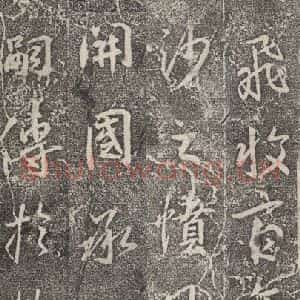 飛收
沙之憤
開國承
嗣傳於
shufawang.cn